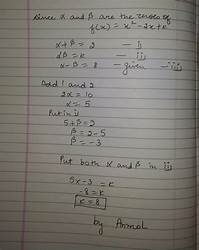 Since α and β are the zeroes of
f(x) = x² - 2x + k
α + β = 2 — i
αβ = k — ii
α - β = 8 — given — iii
Add 1 and 2
2α = 10
α = 5
Put in i
5 + β = 2
β = 2 - 5
β = -3
Put both α and β in ii
5x-3 = k
-8 = k
k = 8
by Anmol